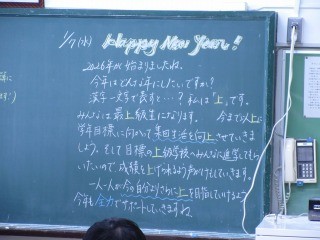 1/7(水) Happy New Year!
2026年が始まりましたね。
今年はどんな年にしたいですか?
漢字一文字で表すと…?私は「上」です。
みんなは最上級生になります。今まで以上に
学年目標に向けて集団生活を向上させていきま
しょう。そして目標の上級学校へみんなに進学してもら
いたいので、成績を上げられるよう声かけをしていきます。
一人一人が今の自分よりさらに上を目指していけるよう
今年も全力でサポートしていきますね